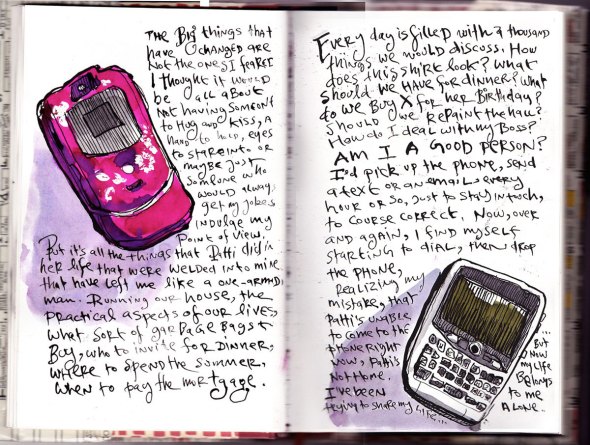 The Big things that
have changed are
not the ones I feared
I thought it would
be all about
not having someone
to hug and kiss, a
hand to hold, eyes
to stare into or
maybe just
someone who
would always
get my jokes
indulge my
point of view.
But it's all the things that Patti did in
her life that were welded into mine
that have left me like a one-armed
man. Running our house, the
practical aspects of our lives,
what sort of garbage bags t
buy, who to invite for dinner,
where to spend the summer,
when to pay the mortgage.
Every day is filled with a thousand
things we would discuss. How
does this shirt look? What
should we have for dinner? What
do we buy X for her birthday?
Should we repaint the hall?
How do I deal with my boss?
AM I A GOOD PERSON?
I'd pick up the phone, send
a text or an email every
hour or so, just to stay in touch,
to course correct. Now, over
and again, I find myself
starting to dial, then drop
the phone,
realizing my
mistake, that
Patti's unable
to come to the
phone right
now, Patti's
not home.
I've been
trying to share my life...
... But
now my
life
belongs
to me
alone.